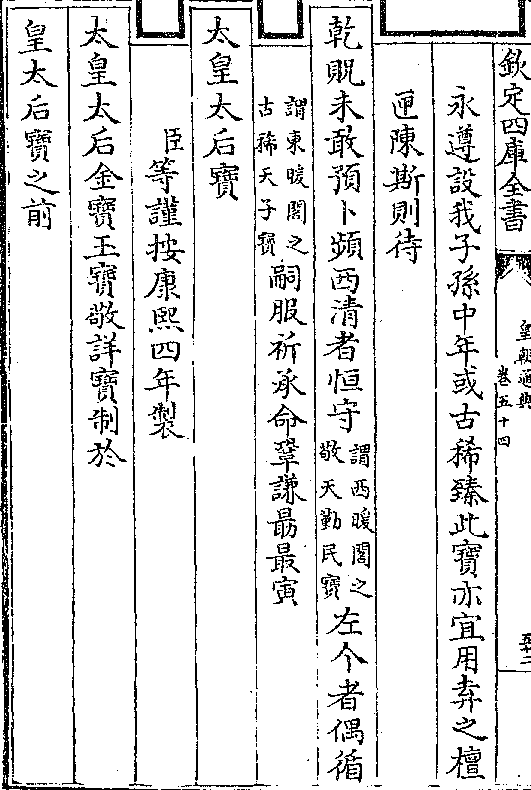 欽定四庫全書
皇朝通典
卷五十四
永遵設我子孫中年或古稀臻此寶亦宜用弆之檀
匣陳斯則待
乾貺未敢預卜頻西清者恒守謂西暖閣之敬天勤民寶左个者偶循
謂東暖閣之古稀天子寶嗣服祈承命鞏謙勗最寅
太皇太后寶
臣等謹按康熙四年製
太皇太后金寶玉寶敬詳寶制於
皇太后寶之前